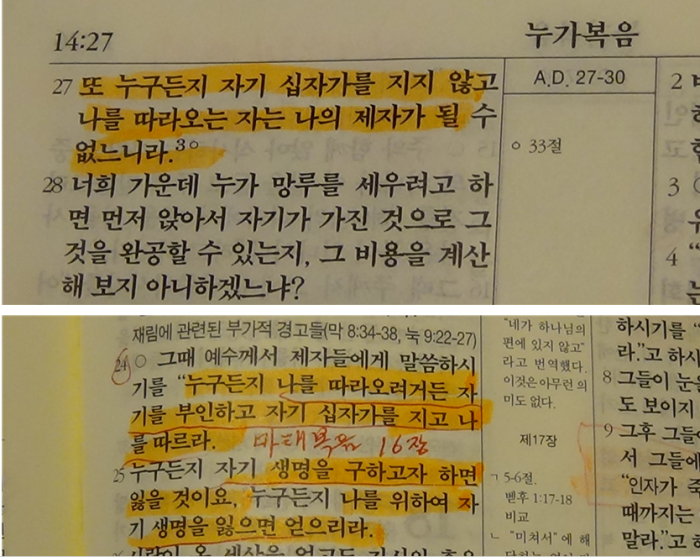 14:27
누가복음
27 또 누구든지 자기 십자가를 지지 않고
나를 따라오는 자는 나의 제자가 될 수
없느니라.³○
28 너희 가운데 누가 망루를 세우려고 하
면 먼저 앉아서 자기가 가진 것으로 그
것을 완공할 수 있는지, 그 비용을 계산
해 보지 아니하겠느냐?
A.D. 27-30
○ 33절
2
3
4
재림에 관련된 부가적 경고들(막 8:34-38, 눅 9:22-27)
24 ○ 그때 예수께서 제자들에게 말씀하시
기를 “누구든지 나를 따라오려거든 자
기를 부인하고 자기 십자가를 지고 나
를 따르라. 마태복음 16장
25 누구든지 자기 생명을 구하고자 하면
잃을 것이요, 누구든지 나를 위하여 자
기 생명을 잃으면 얻으리라.
"네가 하나님의
편에 있지 않고"
라고 번역했다.
이것은 아무런 의
미도 없다.
제17장
ㄱ 5-6절.
벧후 1:17-18
비교
ㄴ "미쳐서"에 해
하시기를 “
라.”고 하시
8 그들이 눈
도 보이지
9 그후 그들
서 그들에
“인자가 죽
때까지는
말라.”고